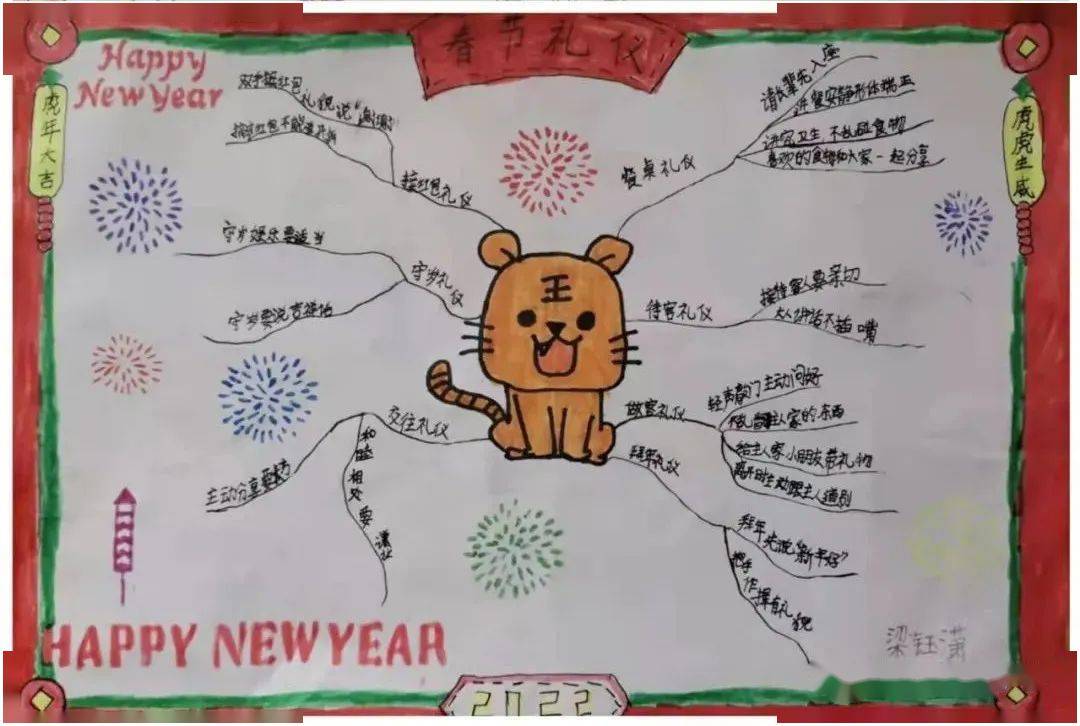 春节礼仪
Happy
New Year
虎年大吉
虎虎生威
双手接红包
礼貌说“谢谢”
接红包礼仪
守岁娱乐要适当
守岁礼仪
守岁要说吉祥话
交往礼仪
和睦相处要谦让
主动分享
餐桌礼仪
请长辈先入座
进餐安静形体端正
讲究卫生 不乱碰食物
喜欢的食物和大家一起分享
待客礼仪
接待客人要亲切
大人讲话不插嘴
做客礼仪
轻声敲门主动问好
不乱翻主人家的东西
给主人家小朋友带礼物
离开时主动跟主人道别
拜年礼仪
拜年先说“新年好”
把手作揖有礼貌
王
HAPPY NEW YEAR
2022
梁钰潇